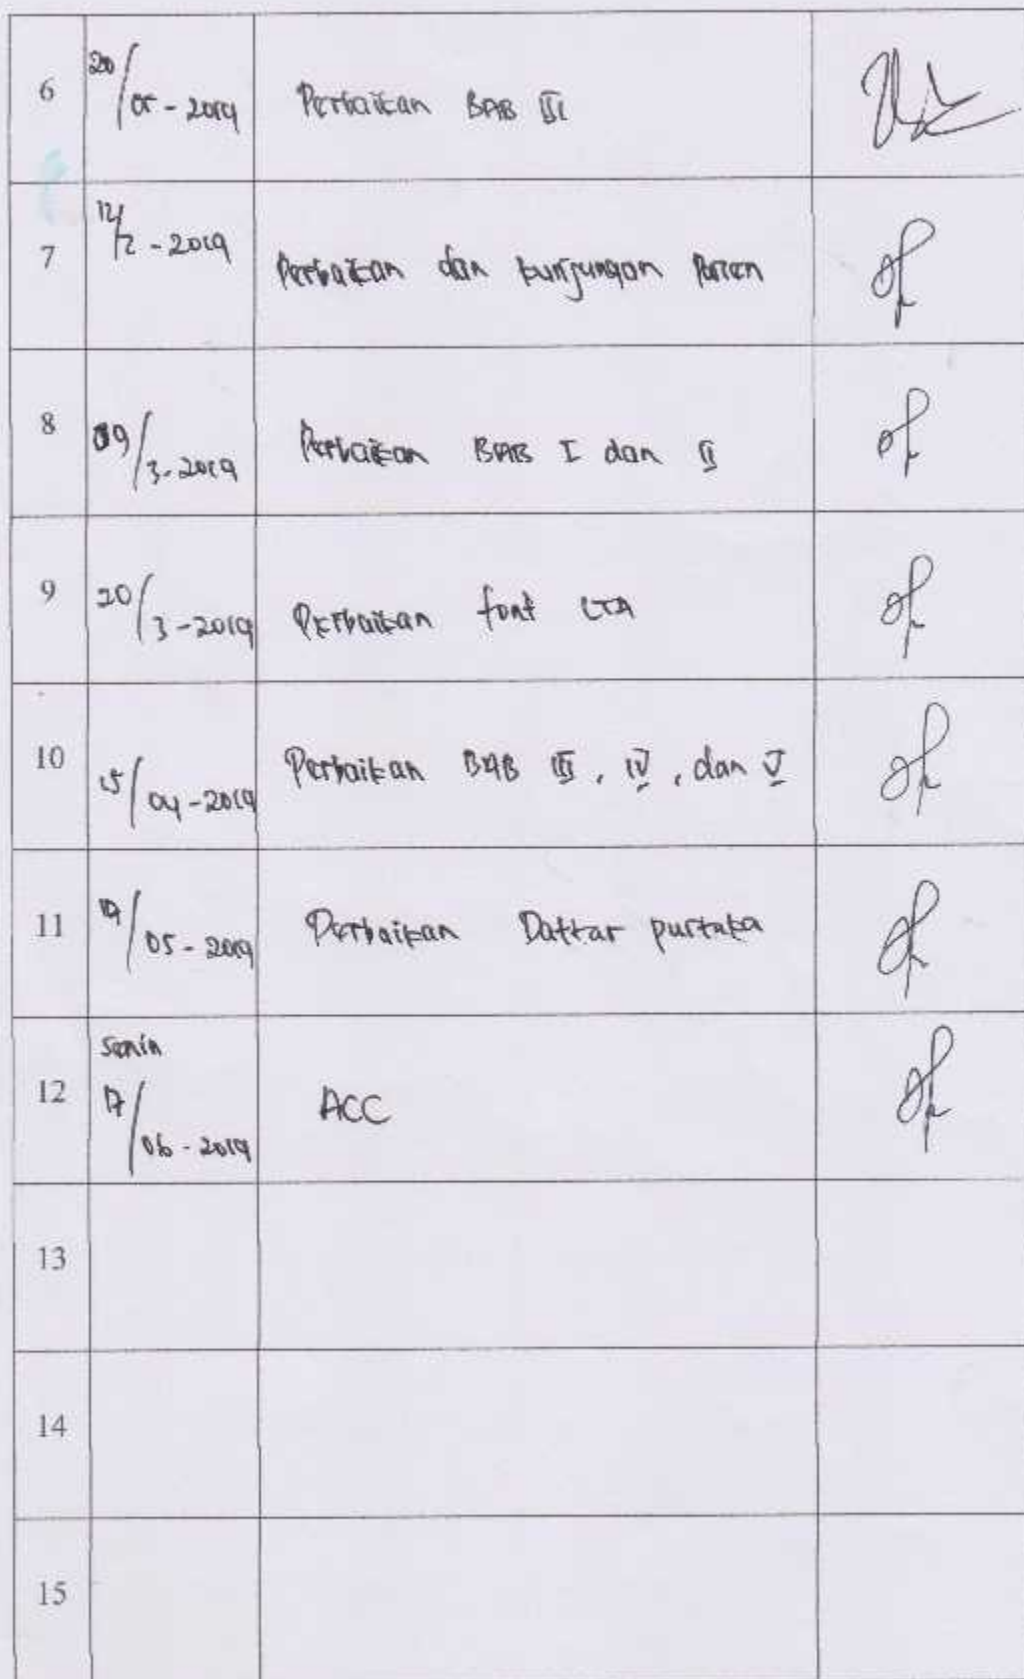 6 20/05-2019 Perbaikan BAB III
7 12/2-2019 Perbaikan dan kunjungan Pasien
8 09/3-2019 Perbaikan BAB I dan II
9 20/3-2019 Perbaikan font LTA
10 15/04-2019 Perbaikan BAB III, IV, dan V
11 /05-2019 Perbaikan Daftar pustaka
12 Senin 17/06-2019 ACC
13
14
15